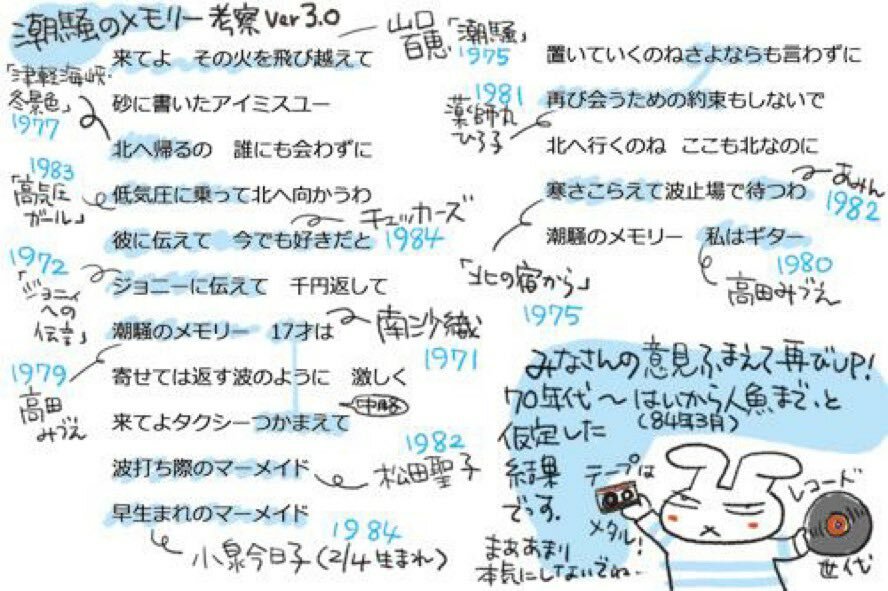 潮騒のメモリー考察ver3.0
来てよ その火を飛び越えて
山口百恵「潮騒」
1975
「津軽海峡・冬景色」
1977
砂に書いたアイミスユー
北へ帰るの 誰にも会わずに
1983
「高気圧ガール」
低気圧に乗って北へ向かうわ
彼に伝えて 今でも好きだと
チェッカーズ
1984
1972
「ジョニィへの伝言」
ジョニーに伝えて 千円返して
潮騒のメモリー 17才は
南沙織
1971
1979
高田みづえ
寄せては返す波のように 激しく
中略
来てよタクシーつかまえて
波打ち際のマーメイド
1982
松田聖子
早生まれのマーメイド
1984
小泉今日子(2/4生まれ)
置いていくのねさよならも言わずに
1981
薬師丸ひろ子
再び会うための約束もしないで
北へ行くのね ここも北なのに
寒さこらえて波止場で待つわ
あみん
1982
「北の宿から」
1975
潮騒のメモリー 私はギター
1980
高田みづえ
みなさんの意見ふまえて再びUP!
70年代～はいから人魚まで、と
(84年3月)
仮定した
結果
でっす.
まああまり
本気にしないでね…
テープは
メタル!
レコード
世代